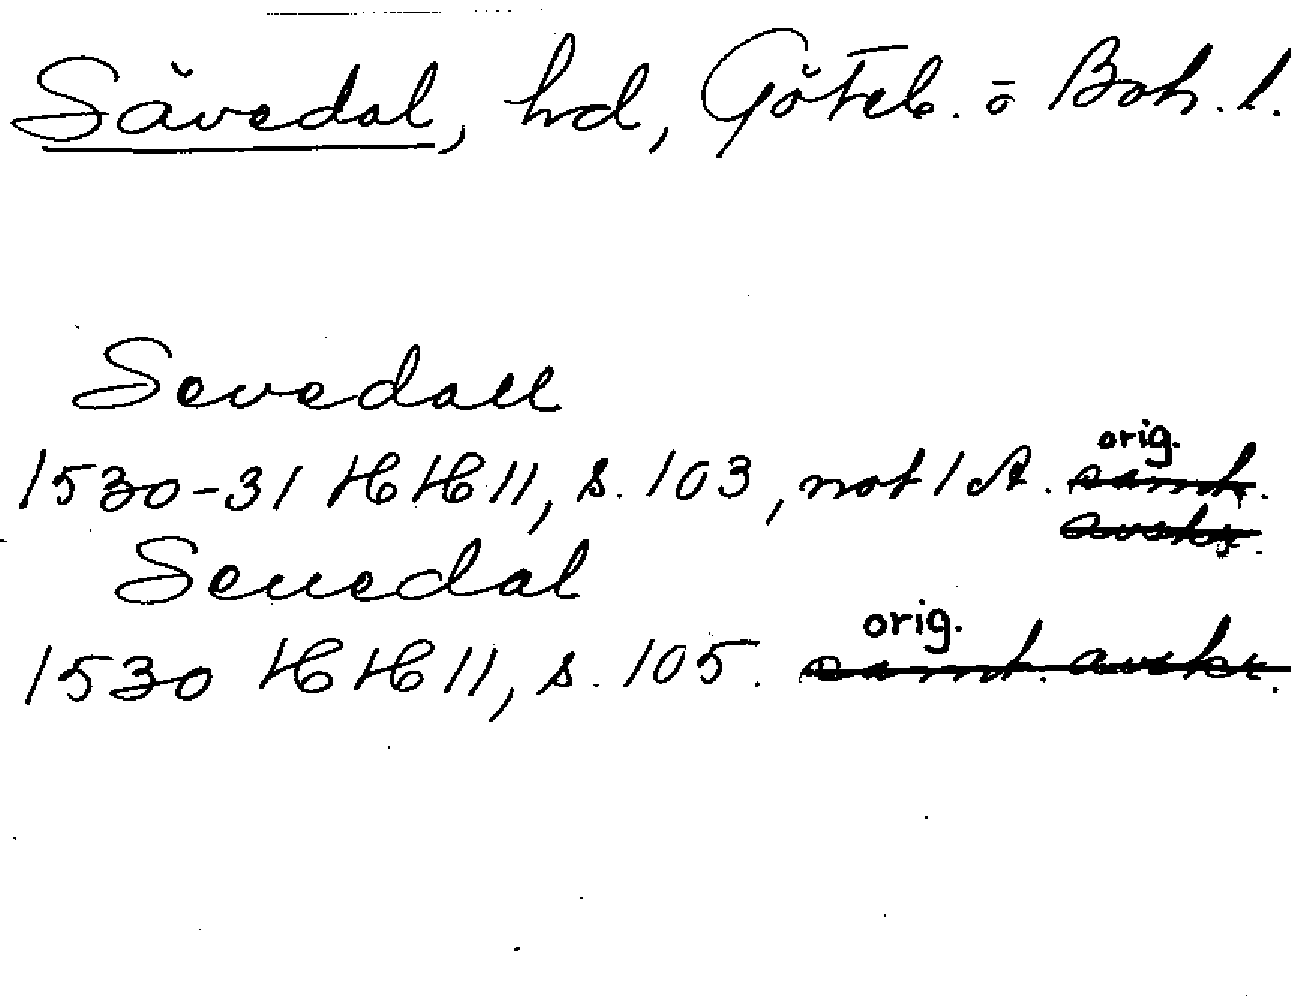 Sävedal, hd, Göteb. o Boh. l.
Sevedall
orig.
1530-31 HH 11, s. 103, not 1 A. samt.
avskr.
Seuedal
orig.
1530 HH 11, s. 105. samt. avskr.